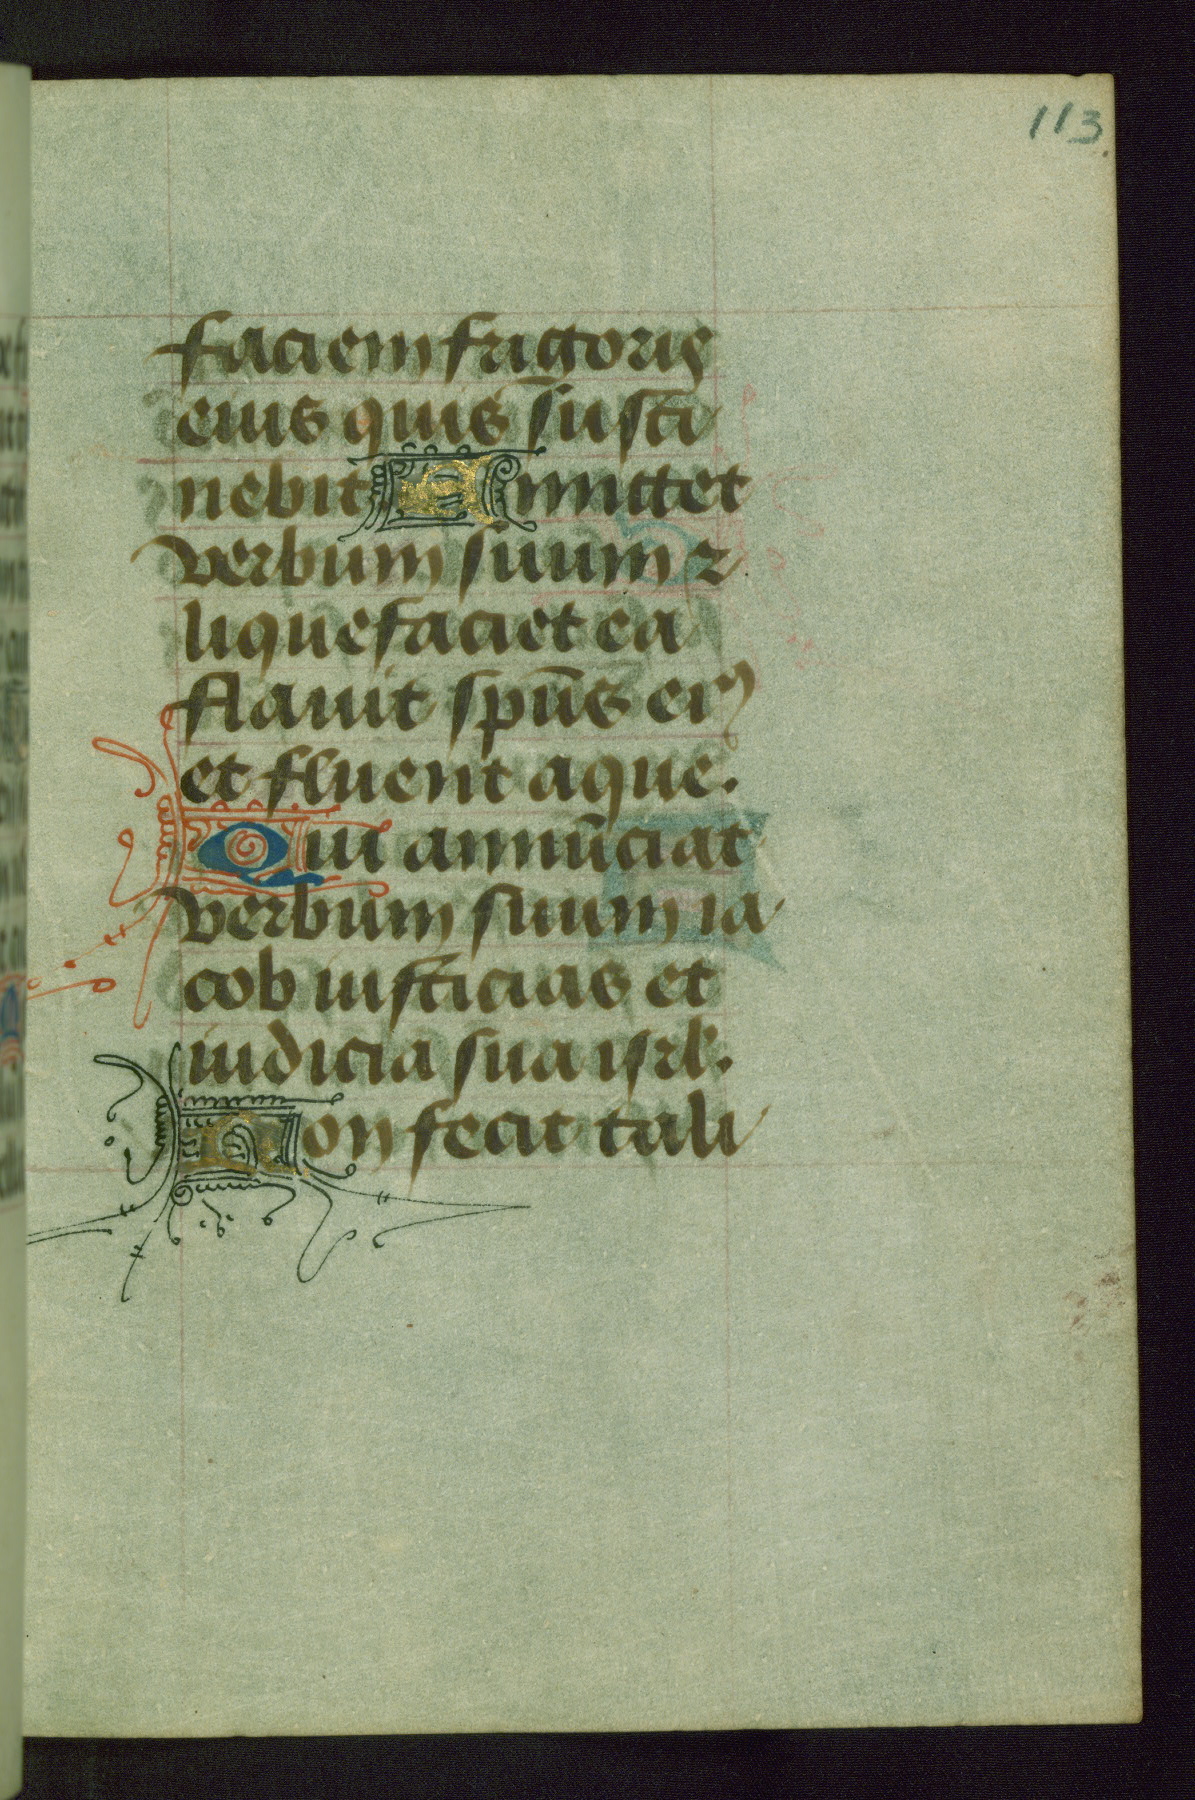 113
faciem frigoris
eius quis susti
nebit Emittet
verbum suum ⁊
liquefaciet ea
flauit spūs eiꝰ
et fluent aque.
Qui annūciat
verbum suum ia
cob iusticias et
iudicia sua isrl.
Non fecit tali